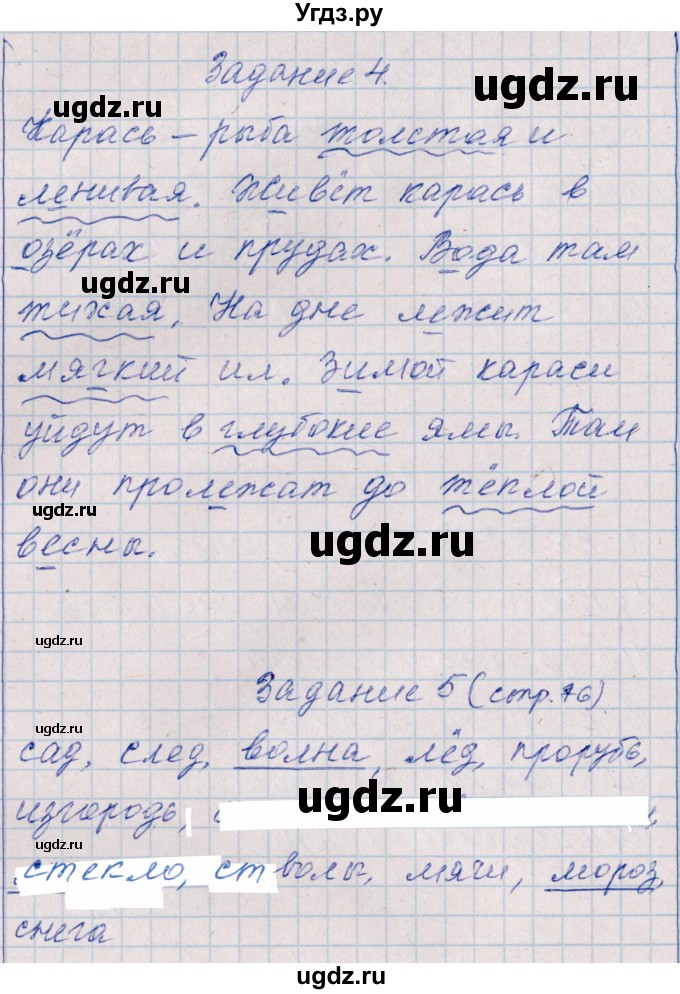 Угдз.ру
Задание 4.
Карась – рыба толстая и
ленивая. Живёт карась в
озёрах и прудах. Вода там
тихая. На дне лежит
мягкий ил. Зимой караси
уйдут в глубокие ямы. Там
они пролежат до тёплой
весны.
Задание 5 (стр. 76)
сад, след, волна, лёд, прорубь,
изгородь,
стекло, стволы, мячи, мороз,
снега
ugdz.ru
ugdz.ru
ugdz.ru
ugdz.ru
ugdz.ru
ugdz.ru
ugdz.ru
ugdz.ru
ugdz.ru
ugdz.ru
ugdz.ru
ugdz.ru